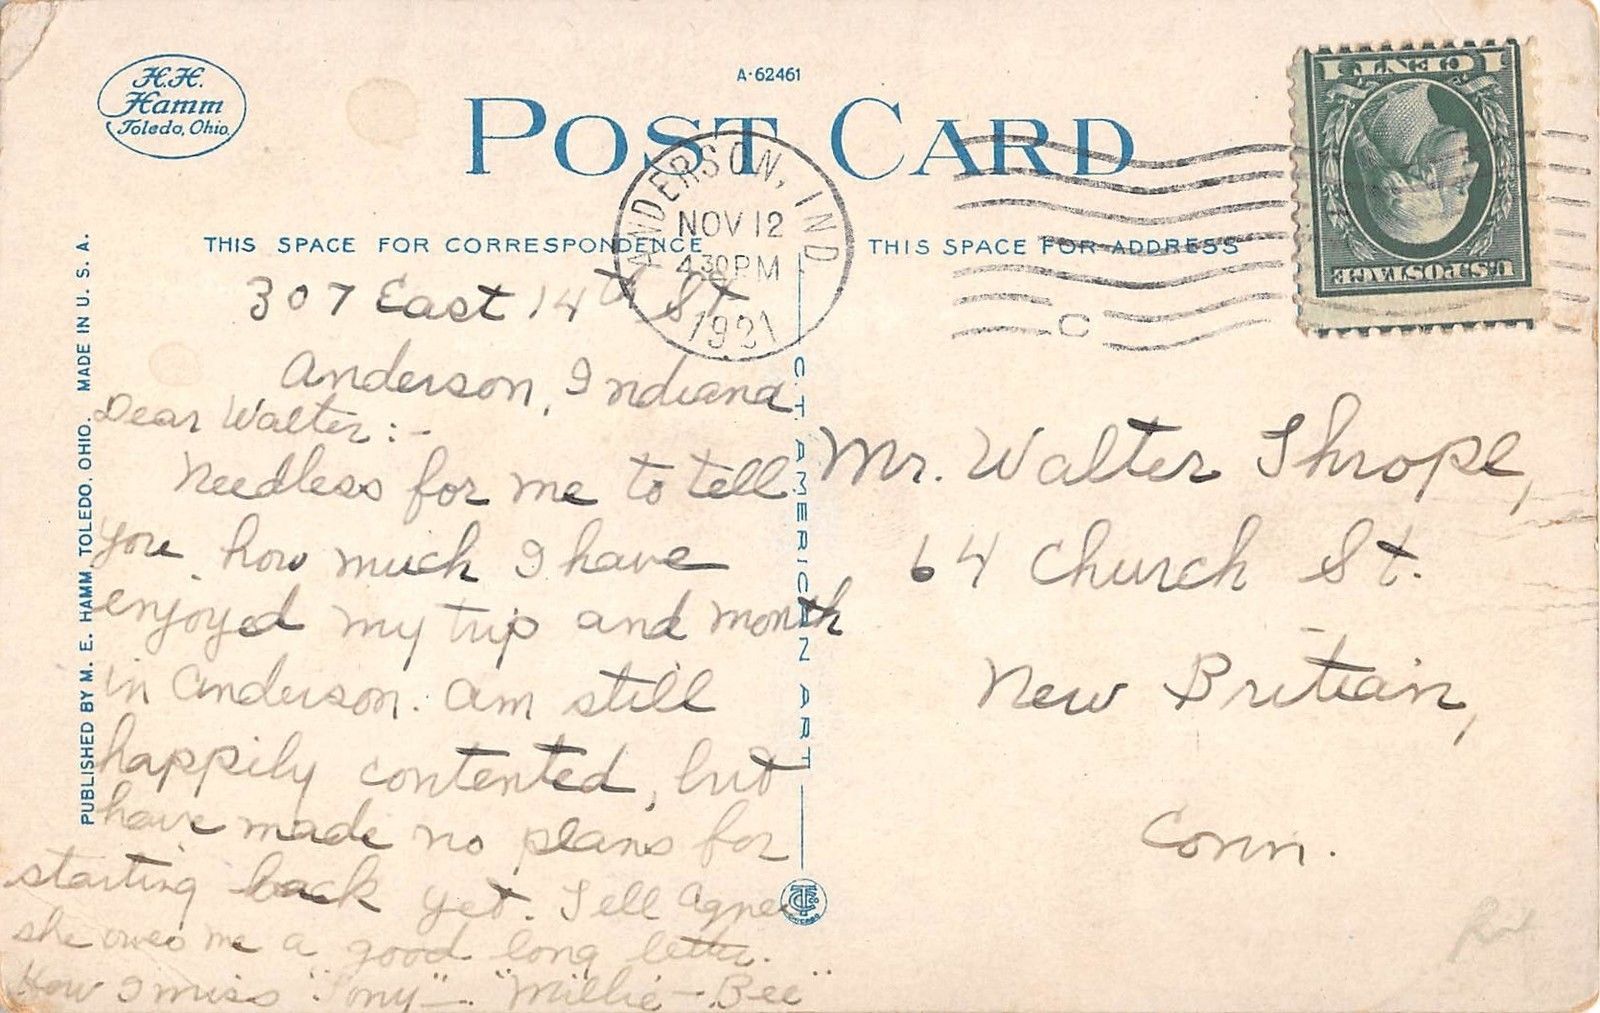 H.H.
Hamm
Toledo, Ohio.
A-62461
POST CARD
ANDERSON, IND.
NOV 12
4 30 PM
1921
C
1 CENT 1
U.S. POSTAGE
THIS SPACE FOR CORRESPONDENCE
THIS SPACE FOR ADDRESS
PUBLISHED BY M. E. HAMM TOLEDO, OHIO. MADE IN U. S. A.
C. T. AMERICAN ART
307 East 14th St
Anderson, Indiana
Dear Walter:-
Needless for me to tell
you how much I have
enjoyed my trip and month
in Anderson. Am still
happily contented, but
have made no plans for
starting back yet. Tell Agnes
she owes me a good long letter.
How I miss "Tony" - "Millie - Bee"
Mr. Walter Thrope,
64 Church St.
New Britian,
Conn.